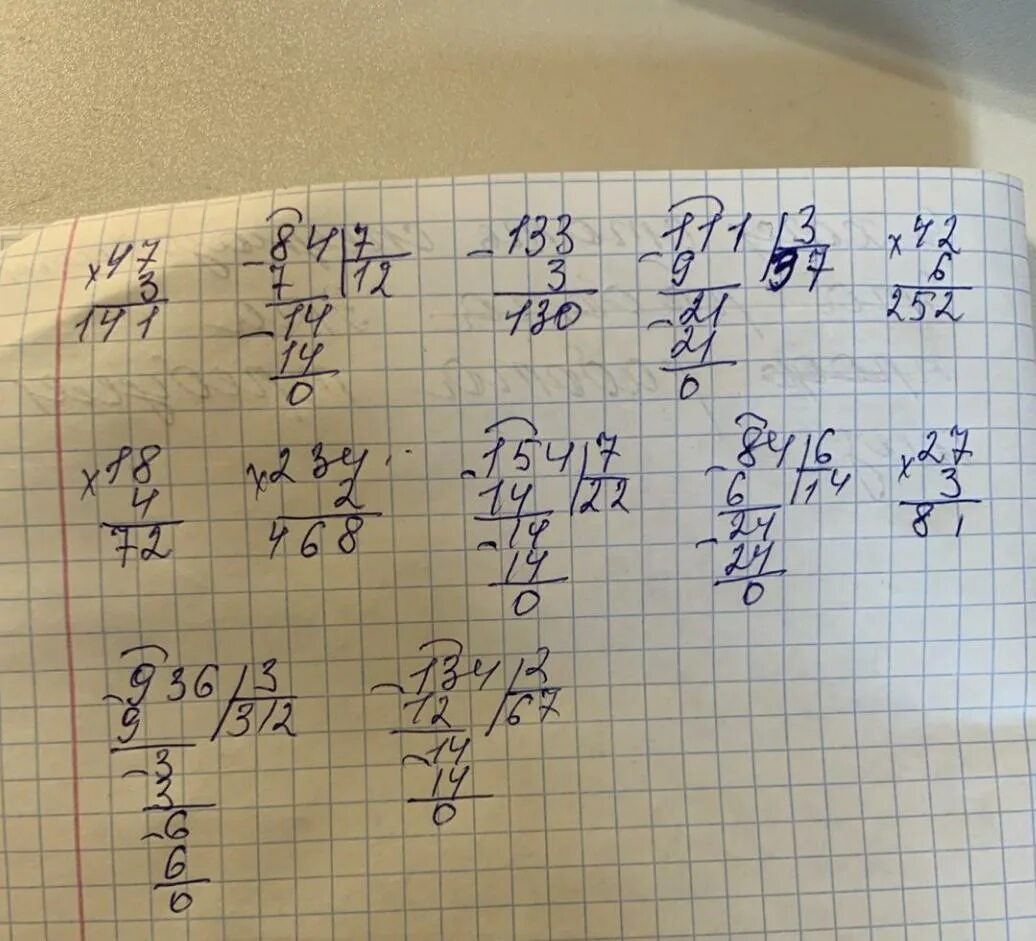 ×47 -84|7 -133 -111|3 ×42
3 7 12 3 9 37 6
141 -14 130 -21 252
14 21
0 0
×18 ×234 -154|7 -84|6 ×27
4 2 14 22 6 14 3
72 468 -14 -24 81
14 24
0 0
-936|3 -134|2
9 312 12 67
-3 -14
3 14
-6 0
6
0